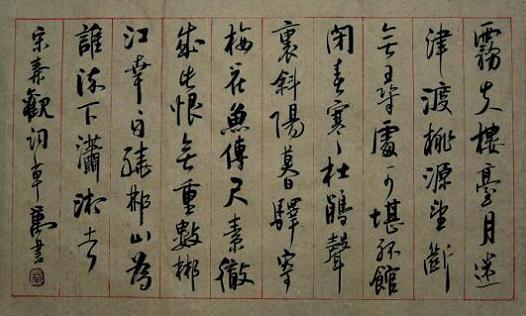 霧失樓臺月迷
津渡桃源望斷
無尋處可堪孤館
閉春寒杜鵑聲
裏斜陽暮驛寄
梅花魚傳尺素徹
成此恨無重數郴
江幸自繞郴山為
誰流下瀟湘去
宋秦觀詞書